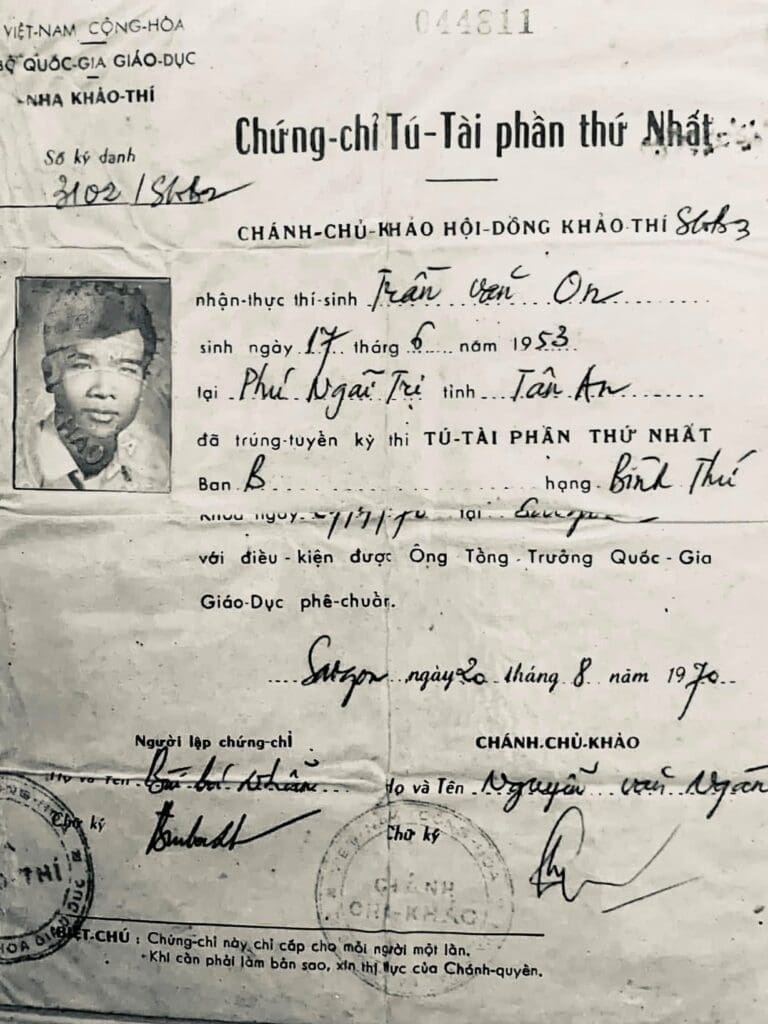 VIỆT-NAM CỘNG-HÒA
BỘ QUỐC-GIA GIÁO-DỤC
NHA KHẢO-THÍ
044811
Số ký danh
3102 / SGB2
Chứng-chỉ Tú-Tài phần thứ Nhất
CHÁNH-CHỦ-KHẢO HỘI-ĐỒNG KHẢO-THÍ
nhận-thực thí-sinh Trần văn On
sinh ngày 17 tháng 6 năm 1953
tại Phú Ngãi Trị tỉnh Tân An
đã trúng-tuyển kỳ thi TÚ-TÀI PHẦN THỨ NHẤT
Ban B hạng Bình Thứ
Khóa ngày tại Saigon
với điều-kiện được Ông Tổng-Trưởng Quốc-Gia
Giáo-Dục phê-chuẩn.
Saigon, ngày 20 tháng 8 năm 1970
Người lập chứng-chỉ
CHÁNH-CHỦ-KHẢO
Họ và Tên
Họ và Tên Nguyễn văn Ngân
Chữ ký
Chữ ký
CHÁNH
CHỦ-KHẢO
BIỆT-CHÚ : Chứng-chỉ này chỉ cấp cho mỗi người một lần.
- Khi cần phải làm bản sao, xin thị thực của Chánh-quyền.